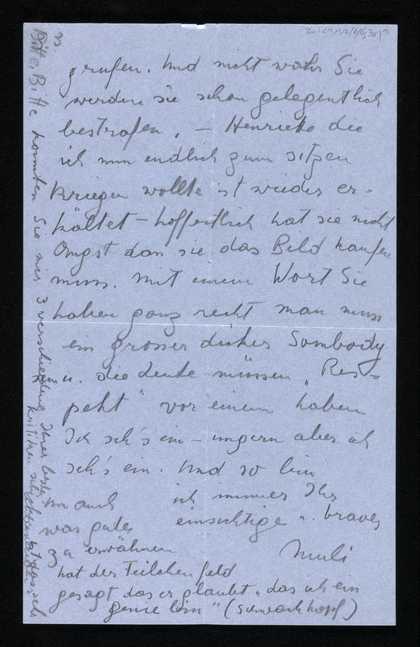 grufen. Und nicht wahr Sie
werden sie schon gelegentlich
bestrafen. – Henrieke die
ich nun endlich zum sitzen
kriegen wollte ist wieder er-
kältet – hoffentlich hat sie nicht
Angst dan sie das Bild kaufen
muss. Mit einem Wort Sie
haben ganz recht man muss
ein grosser dicker Sombody
sein u. die Leute müssen "Res-
pekt" vor einem haben
Ich seh's ein – ungern aber ich
seh's ein. Und so bin
ich immer Ihr
einsichtige u. braves
Muli
Um auch
was gutes
zu erwähnen
hat der Teilchenfeld
gesagt das er glaubt "das ich ein
genie bin" (Schwachkopf)
Bitte, Bitte könnten Sie mir 3 verschiedene Ihrer
kritiken